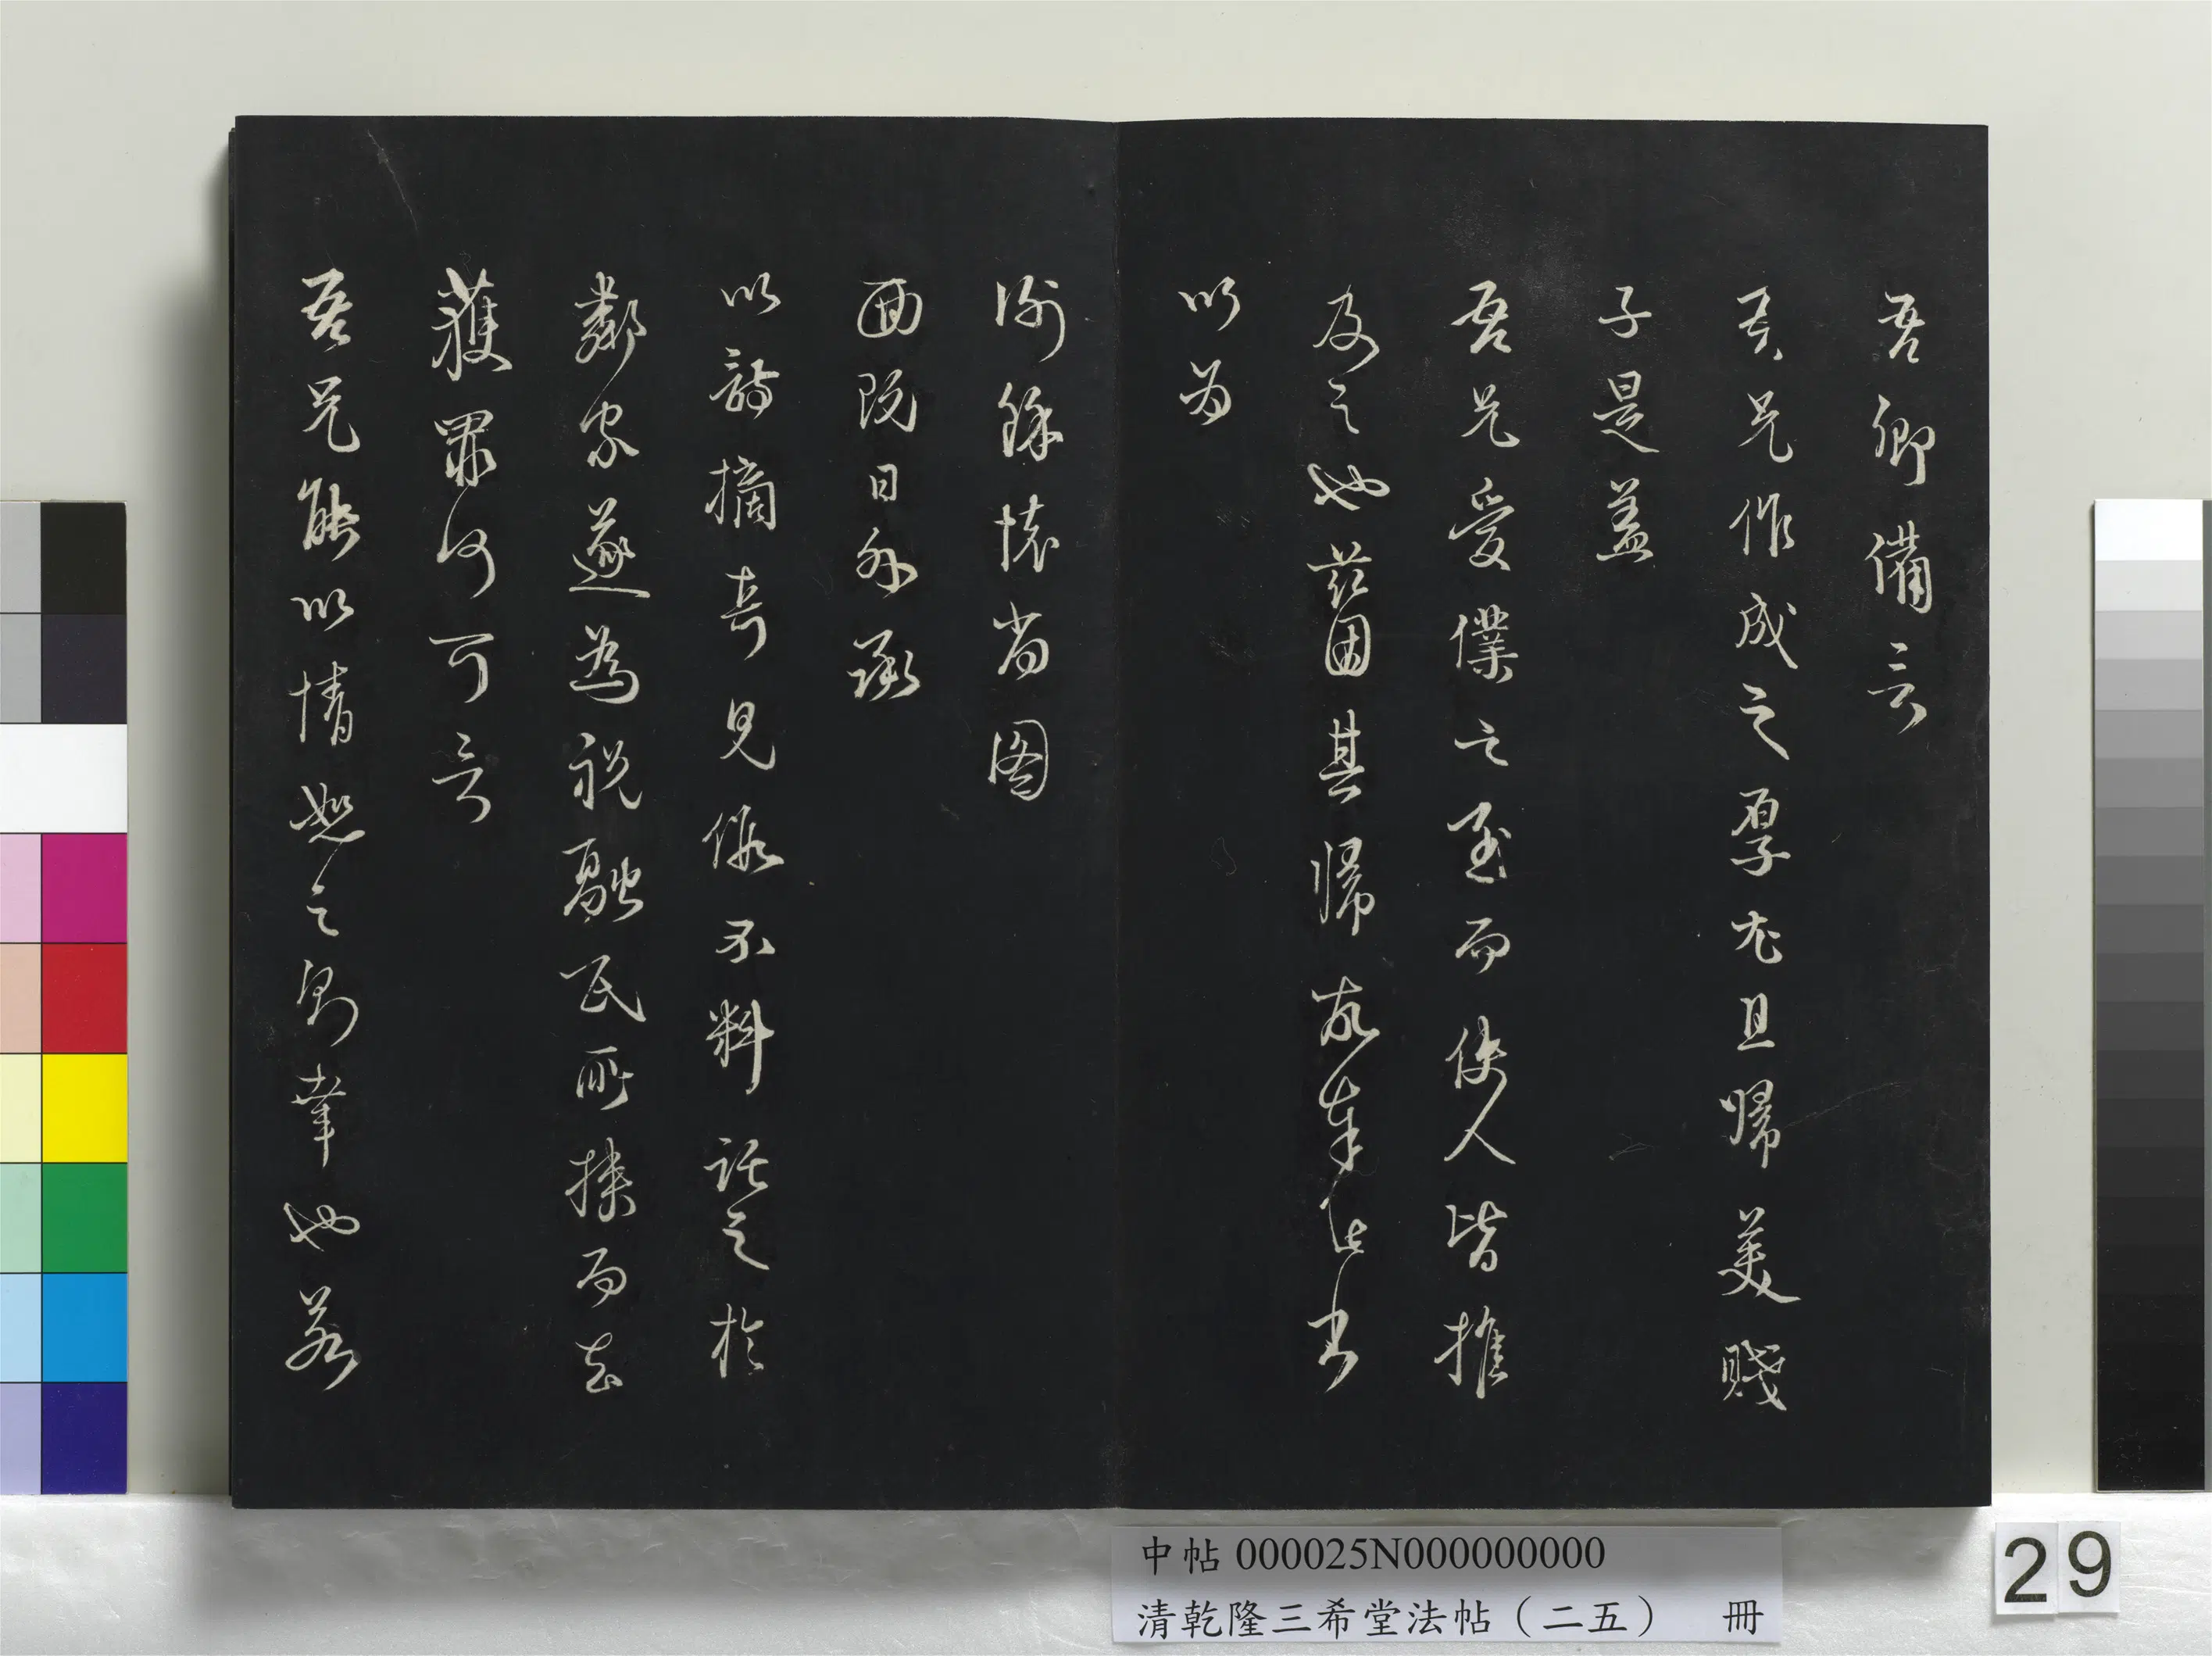 吾卿備言
吾兄作成之厚尤且歸美賤
子是盖
吾兄愛僕之至而使人皆推
及之也茲因其歸故奉此書
以为
謝餘懷尚圖
面既日外承
以詩摘奇見假不料託之於
鄰家遂為祝融氏所挾而去
獲罪何可言
吾兄能以情恕之則幸也若
中帖 000025N000000000
清乾隆三希堂法帖（二五） 冊
29